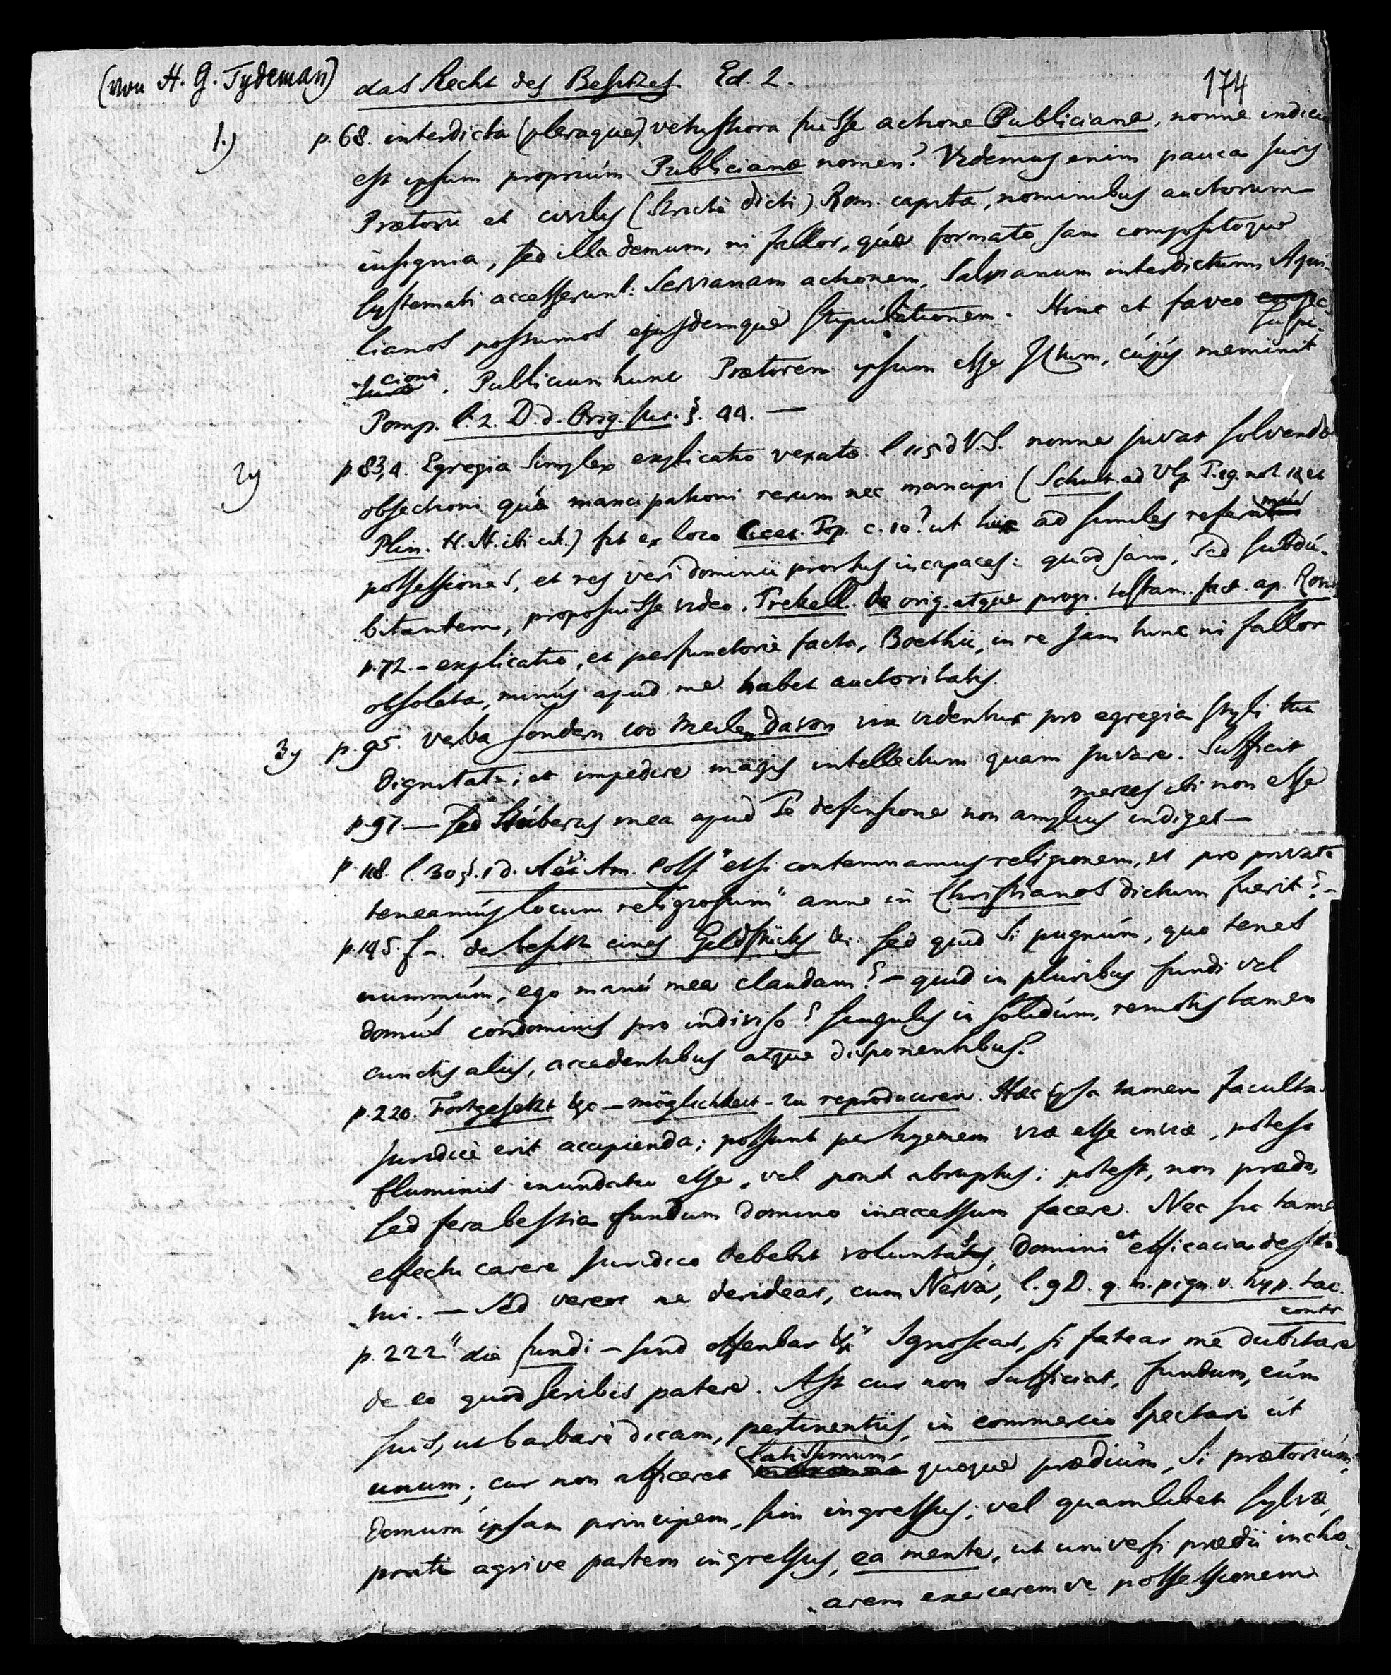 (von H. G. Tydeman) das Recht des Besitzes Ed. 2. 174
1.) p. 68. interdicta (pleraque) vetustiora fuisse actione Publiciana, nonne indicio
est ipsum proprium Publicianæ nomen? Videmus enim pauca Juris
Prætorii et civilis (stricte dicti) Rom. capita, nominibus auctorum
insignia, sed illa demum, ni fallor, quæ formato jam compositoque
Systemati accesserunt: Servianam actionem, Salvianum interdictum, Aqui-
lianos possumos ejusdemque stipulationem. Hinc et faveo suspi-
cioni. Publicium hunc Prætorem ipsum esse JCtum, cujus meminit
Pomp. l. 2. D. d. Orig. Jur. §. 44. —
2) p 83,4. Egregia simplex explicatio vexatæ l 115 d V.S. nonne juvat solvendæ
objectioni quæ mancipationi rerum nec mancipi (Schult. ad Ulp. T. 19. not. et
Plin. H. N. ibi cit.) fit ex loco Cicer. Top. c. 10? ut hic ad similes referatur
possessiones, et res veri dominii prorsus incapaces: quod jam, sed subdu-
bitantem, proposuisse video. Trekell. de orig. atque progr. testam. fact. ap.
p. 72. - explicatio, et perfunctorie facta, Boethii, in re jam tunc ni fallor
obsoleta, minus apud me habet auctoritatis.
3) p. 95. verba sondern 100 Meilen davon vix videntur pro egregia styli tui
dignitate; et impedire magis intellectum quam juvare. Sufficit
merces ibi non esse
p. 97. — sed Huberus mea apud Te defensione non amplius indiget —
p. 108. l. 30 §. 1 d. Acq. Am. Poss "etsi contemnamus religionem, et pro privato
teneamus locum religiosum" anne in Christianos dictum fuerit? -
p. 145. f -. de besitz eines Geldstücks &c. sed quid si pugnum, quo tenes
nummum, ego manu mea claudam? - quid in pluribus fundi vel
domus condominis pro indiviso? singulis in solidum, remotis tamen
cunctis aliis, accedentibus atque disponentibus?
p. 220. Fortgesetzt &c - möglichkeit - zu reproduciren. Hæc ipsa tamen facultas
juridice erit accipienda; possunt per hyemem viæ esse inviæ, potest
fluminis inundatio esse, vel pons abruptus; potest, non prædo,
sed fera bestia fundum domino inaccessum facere. Nec sic tamen
effectu carere juridico debebit voluntatis Domini et efficacia desti-
tui. — Sed vereor ne derideas, cum Nerva, l. 9 D. q. m. pign. v. hyp. tac.
contr.
p. 222 "die fundi - sind offenbar &c" Ignoscas, si fatear me dubitare
de eo quod scribis patere. Ast cur non sufficiat, fundum, cum
suis, ut barbare dicam, pertinentiis, in commercio spectari ut
unum; cur non afficeret latissimum quoque prædium, si prætorium,
domum ipsam principem, sim ingressus; vel quamlibet sylvæ,
prati agrive partem ingressus, ea mente, ut universi prædii incho-
arem exercerem ve possessionem